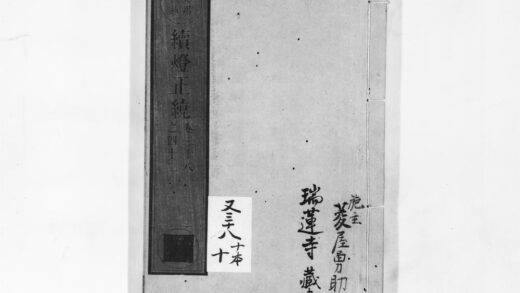 續燈正統
卷三十八
之四十
又三十八
十本
十
施主
菱屋勇助
瑞蓮寺藏